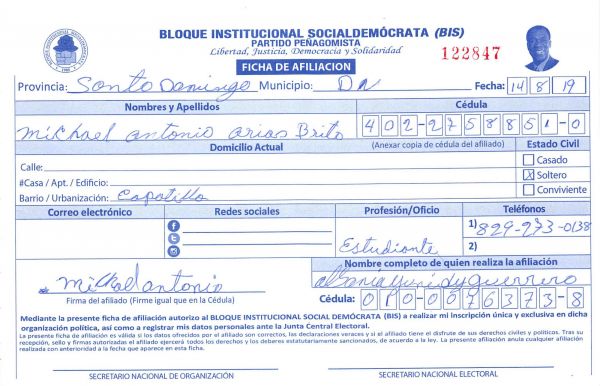 BLOQUE INSTITUCIONAL SOCIALDEMÓCRATA (BIS)
PARTIDO PEÑAGOMISTA
Libertad, Justicia, Democracia y Solidaridad
122847
FICHA DE AFILIACION
Provincia: Santo Domingo Municipio: DN Fecha: 14 8 19
Nombres y Apellidos Cédula
Michael antonio arias Brito 402-2758851-0
Domicilio Actual (Anexar copia de cédula del afiliado) Estado Civil
Calle: Casado
#Casa / Apt. / Edificio: X Soltero
Barrio / Urbanización: Capotillo Conviviente
Correo electrónico Redes sociales Profesión/Oficio Teléfonos
1) 829-273-0138
Estudiante 2)
Nombre completo de quien realiza la afiliación
Michael antonio guerrero
Firma del afiliado (Firme igual que en la Cédula) Cédula: 010-0076373-8
Mediante la presente ficha de afiliación autorizo al BLOQUE INSTITUCIONAL SOCIAL DEMÓCRATA (BIS) a realizar mi inscripción única y exclusiva en dicha
organización política, así como a registrar mis datos personales ante la Junta Central Electoral.
La presente ficha de afiliación es válida si los datos ofrecidos por el afiliado son correctos, las declaraciones veraces y si el afiliado tiene el disfrute de sus derechos civiles y políticos. Tras su
recepción, sello y firmas autorizadas el afiliado ejercerá todos los derechos y los deberes estatutariamente sancionados, de acuerdo a la ley. La presente afiliación anula cualquier afiliación
realizada con anterioridad a la fecha que aparece en esta ficha.
SECRETARIO NACIONAL DE ORGANIZACIÓN SECRETARIO NACIONAL ELECTORAL